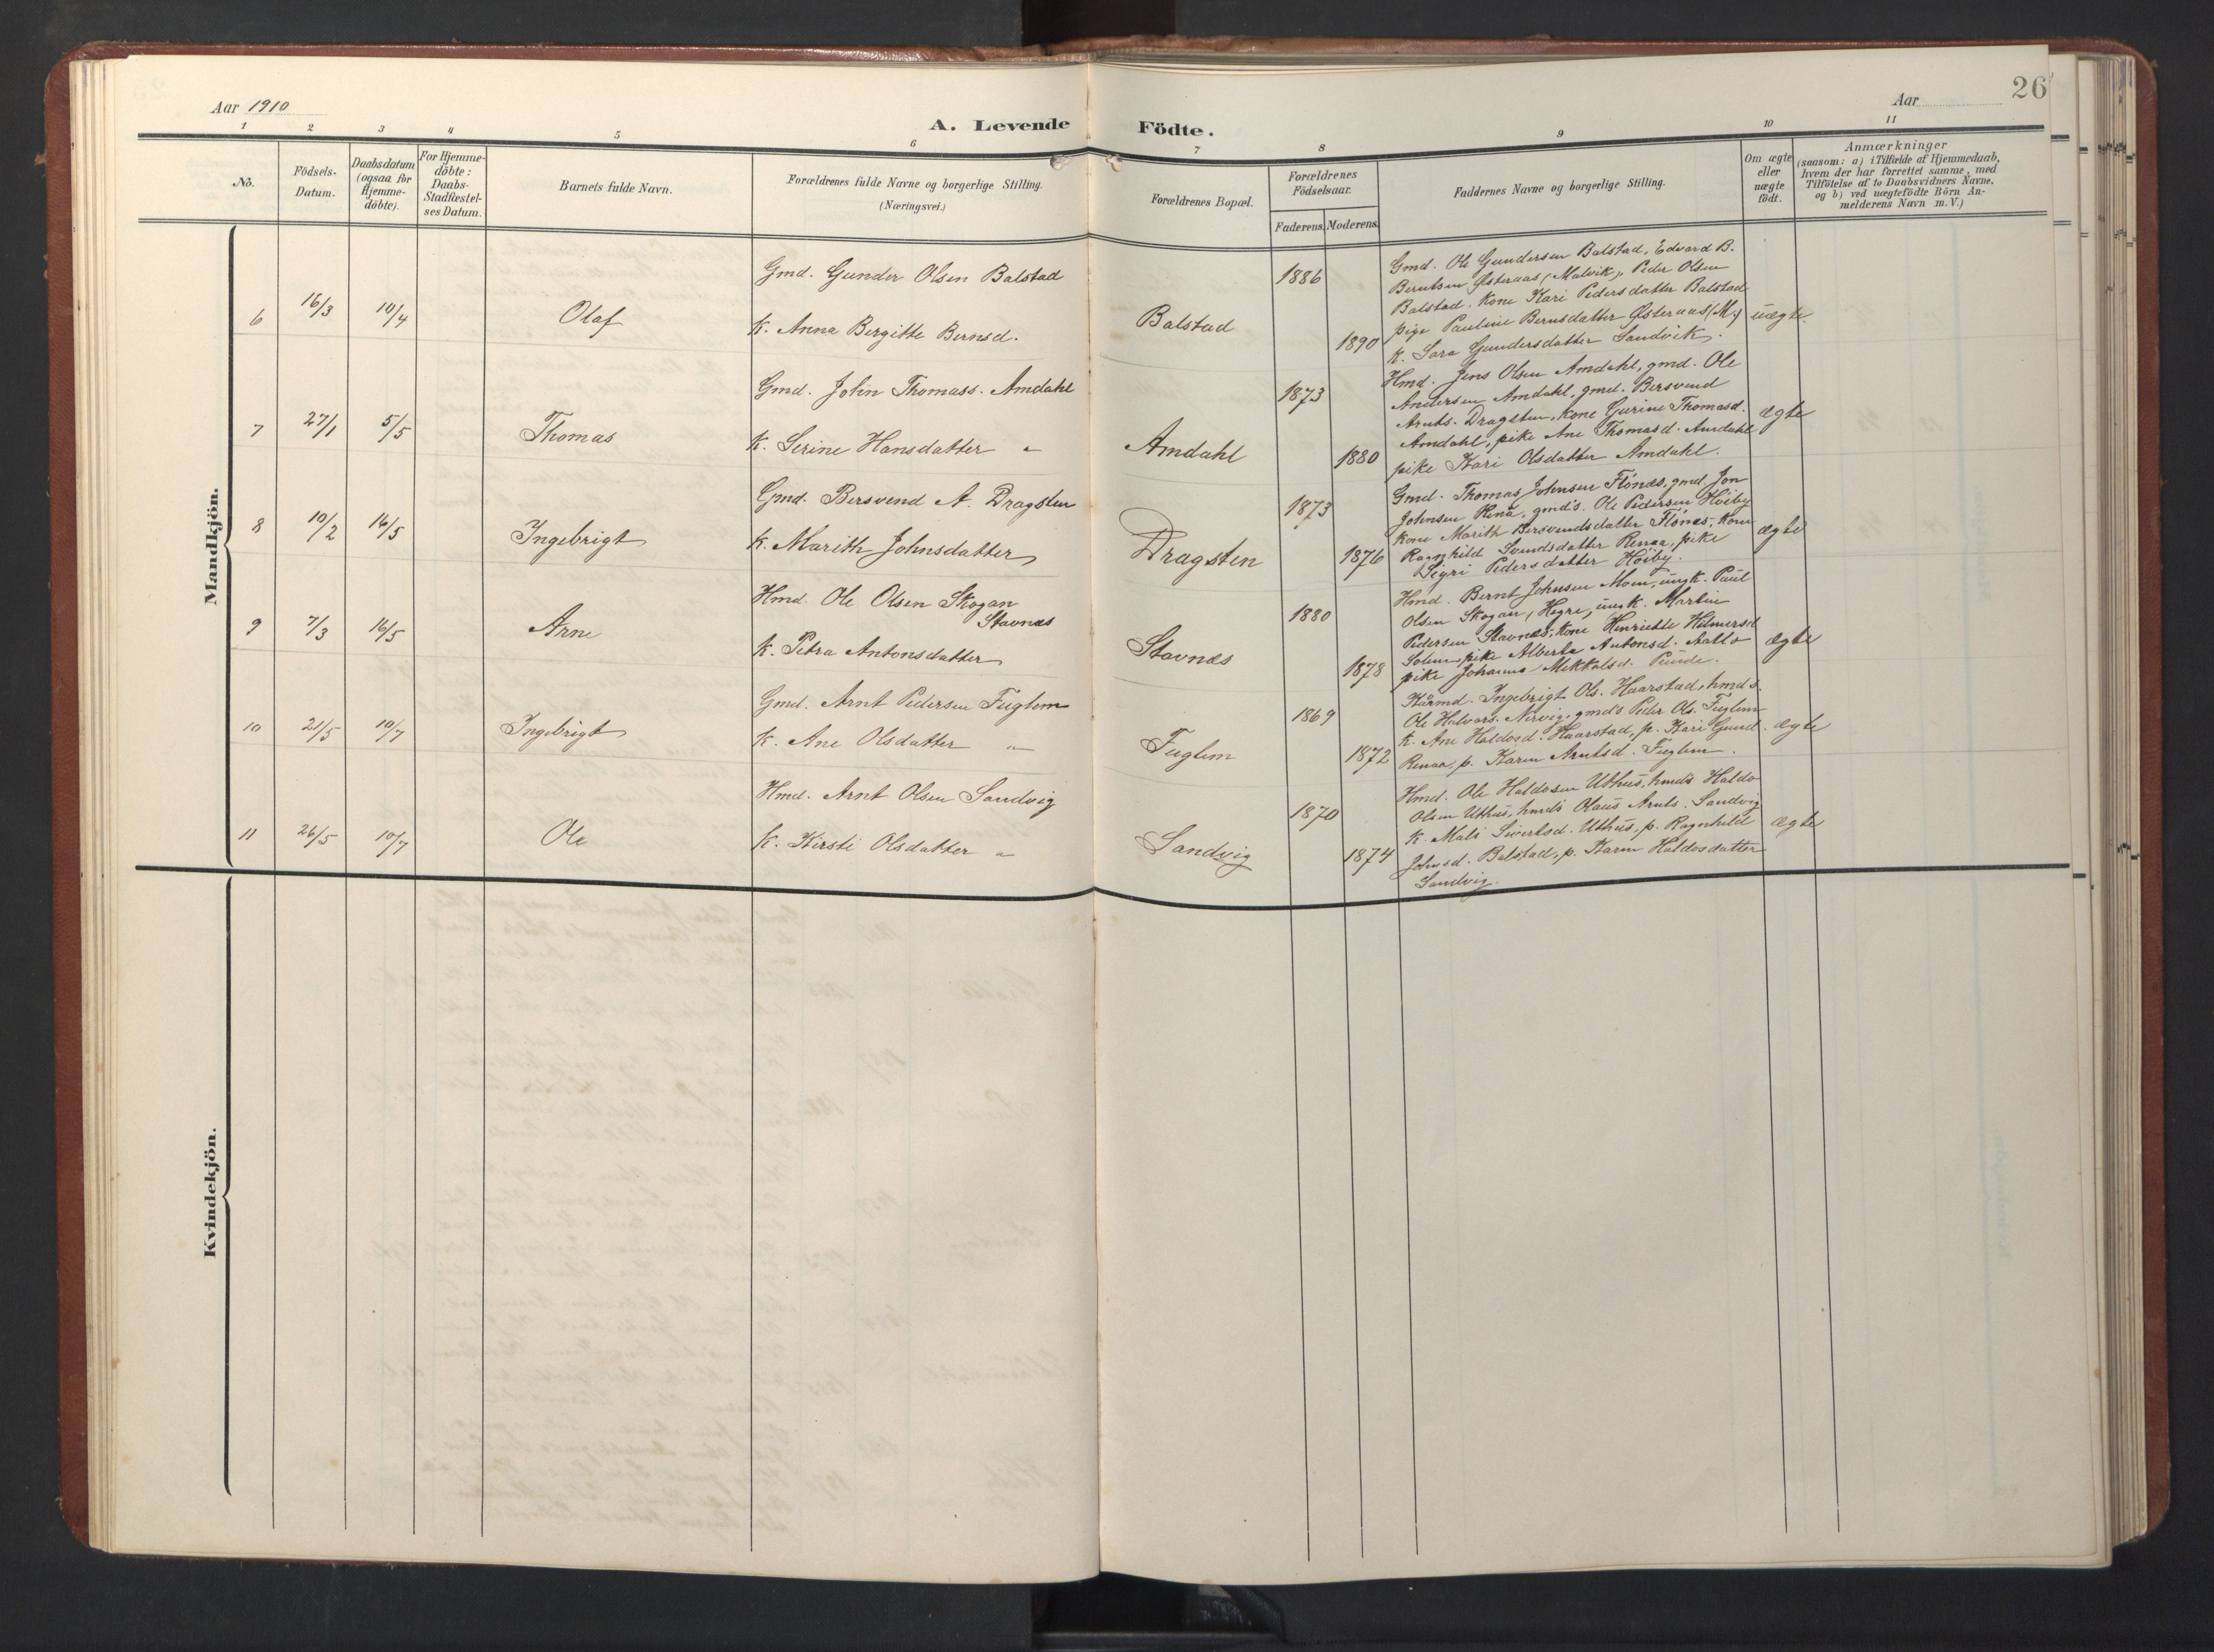 Aar 1910
A. Levende Födte.
Aar
26
1 2 3 4 5 6 7 8 9 10 11
No.
Födsels-
Datum.
Daabsdatum
(ogsaa for
Hjemme-
döbte).
For Hjemme-
döbte:
Daabs-
Stadfæstel-
ses Datum.
Barnets fulde Navn.
Forældrenes fulde Navne og borgerlige Stilling.
(Næringsvei.)
Forældrenes Bopæl.
Forældrenes
Födselsaar.
Faderens. Moderens.
Faddernes Navne og borgerlige Stilling.
Om ægte
eller
uægte
födt.
Anmærkninger
(saasom: a) i Tilfælde af Hjemmedaab,
hvem der har forrettet samme, med
Tilföielse af to Daabsvidners Navne,
og b) ved uægtefödte Börn An-
melderens Navn m.V.)
Mandkjön.
6 16/3 10/4 Olaf
Gmd. Gunder Olsen Balstad
K. Anna Bergitte Bernsd.
Balstad
1886
1890
Gmd. Ole Gundersen Balstad, Edvard B.
Berntsen Østeraas (Malvik), Peder Olsen
Balstad. Kone Kari Pedersdatter Balstad
pige Pauline Bernsdatter Østeraas (M.)
K. Sara Gundersdatter Sandvik.
uægte.
7 27/1 5/5 Thomas
Gmd. John Thomass. Amdahl
K. Serine Hansdatter "
Amdahl
1873
1880
Hmd. Jens Olsen Amdahl, gmd. Ole
Andersen Amdahl, gmd. Bersvend
Arnts. Dragsten, Kone Gurine Thomasd.
Amdahl, pike Ane Thomasd. Amdahl
pike Kari Olsdatter Amdahl.
ægte
8 10/2 16/5 Ingebrigt
Gmd. Bersvend A. Dragsten
K. Marith Johnsdatter
Dragsten
1873
1876
Gmd. Thomas Johnsen Flønæs, gmd. Jon
Johnsen Renå, gmd's. Ole Pedersen Høiby
Kone Marith Bersvendsdatter Flønæs, Kone
Ragnhild Svendsdatter Renaa, pike
Sigri Pedersdatter Høiby.
ægte
9 7/3 16/5 Arne
Hmd. Ole Olsen Skogan
Stavnæs
K. Petra Antonsdatter
Stavnæs
1880
1878
Hmd. Bernt Johnsen Moen, ungk. Paul
Olsen Skogan, Hegre, ungk. Martin
Pedersen Stavnæs, Kone Henriette Hilmersd
Solem, pike Alberta Antonsd. Aallo
pike Johanna Mikkalsd.
ægte
10 21/5 10/7 Ingebrigt
Gmd. Arnt Pedersen Fuglem
K. Ane Olsdatter "
Fuglem
1869
1872
Kårmd. Ingebrigt Ols. Haarstad, hmd's.
Ole Halvars. Nervig, gmd's Peder Ols. Fuglem
K. Ane Haldosd. Haarstad, p. Kari Gund.
Renaa, p. Karen Arntsd. Fuglem.
ægte
11 26/5 10/7 Ole
Hmd. Arnt Olsen Sandvig
K. Kirsti Olsdatter "
Sandvig
1870
1874
Hmd. Ole Haldosen Uthus, hmd's Haldo
Olsen Uthus, hmd's Olaus Arnts. Sandvig
K. Mali Sivertsd. Uthus, p. Ragnhild
Johnsd. Balstad, p. Karen Haldosdatter
Sandvig.
ægte
Kvindekjön.